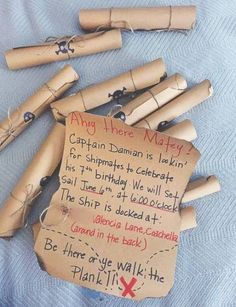 Ahoy there Matey!
Captain Damian is lookin'
for Shipmates to Celebrate
his 7th birthday. We will Set
Sail June 6th, at 6:00 O'clock
The Ship is docked at:
Valencia Lane, Coachella
(around in the back)
Be there or ye walk the
Plank!!